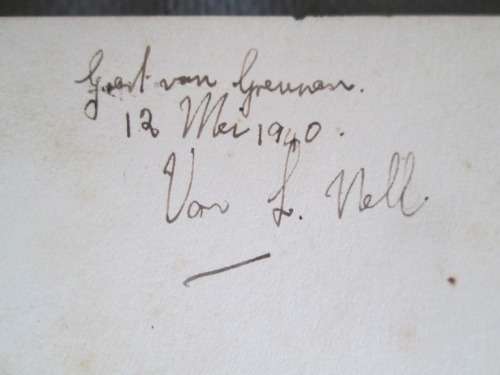 Geert van Greunen.
12 Mei 1940.
Van L. Nell.